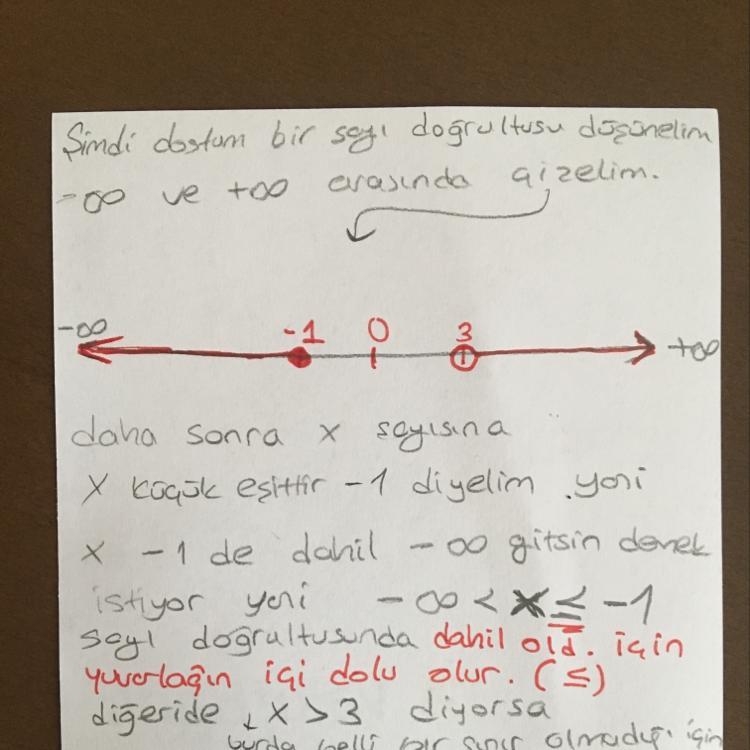 Şimdi dostum bir sayı doğrultusu düşünelim
-∞ ve +∞ arasında çizelim.
-∞ -1 0 3 +∞
daha sonra x sayısına
x küçük eşittir -1 diyelim yani
x -1 de dahil -∞ gitsin demek
istiyor yani -∞ < x ≤ -1
sayı doğrultusunda dahil old. için
yuvarlağın içi dolu olur. (≤)
diğeride x > 3 diyorsa
burda belli bir sınır olmadığı için